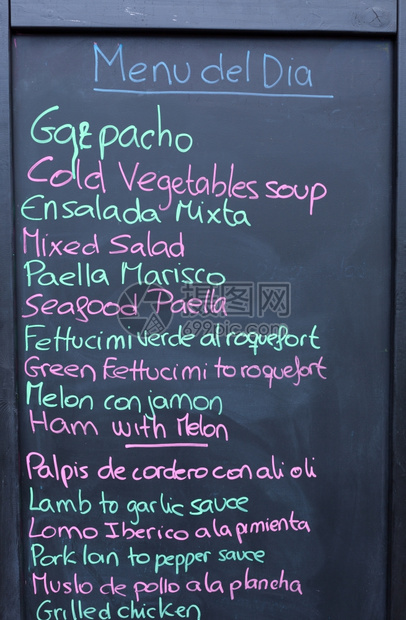 Menu del Dia
Gazpacho
Cold Vegetables soup
Ensalada Mixta
Mixed Salad
Paella Marisco
Seafood Paella
Fettucimi verde al roquefort
Green Fettucimi to roquefort
Melon con jamon
Ham with Melon
Palpis de cordero con ali oli
Lamb to garlic sauce
Lomo Iberico a la pimienta
Pork loin to pepper sauce
Muslo de pollo a la plancha
Grilled chicken
摄图网
699pic.com